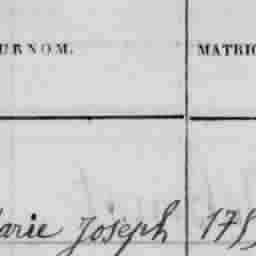 URNOM. MATRIC
arie Joseph 175